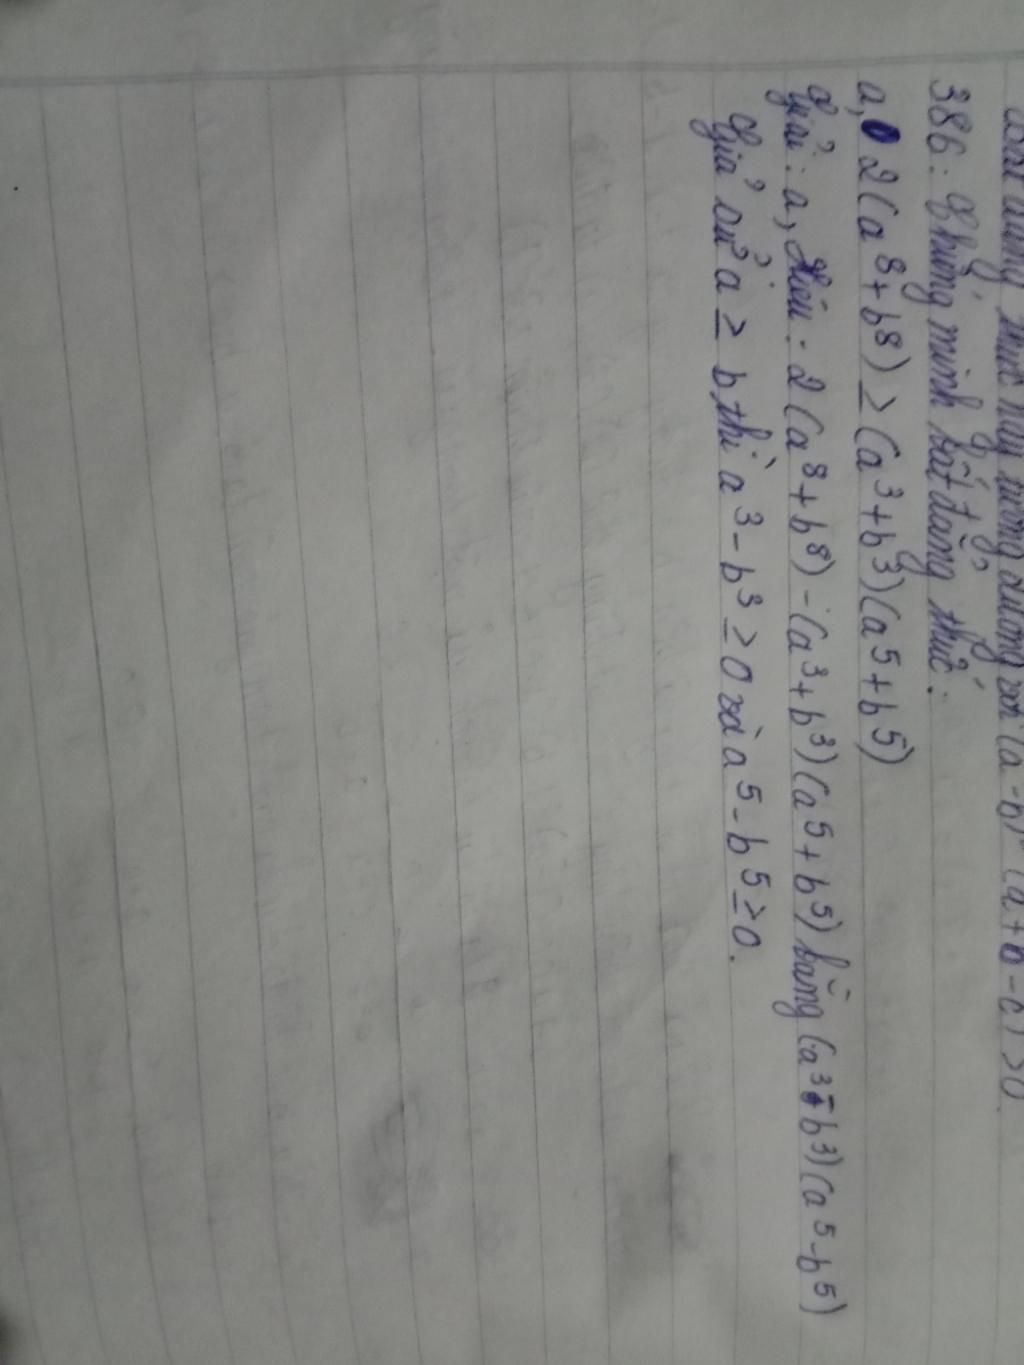 thức này tương đương với (a-b)² (a+b-c) >0.
386: Chứng minh bất đẳng thức:
a, 2(a⁸+b⁸) ≥ (a³+b³)(a⁵+b⁵)
Giải: a, Hiệu: 2(a⁸+b⁸) - (a³+b³)(a⁵+b⁵) bằng (a³-b³)(a⁵-b⁵)
Giả sử a ≥ b thì a³-b³ ≥ 0 và a⁵-b⁵ ≥ 0.